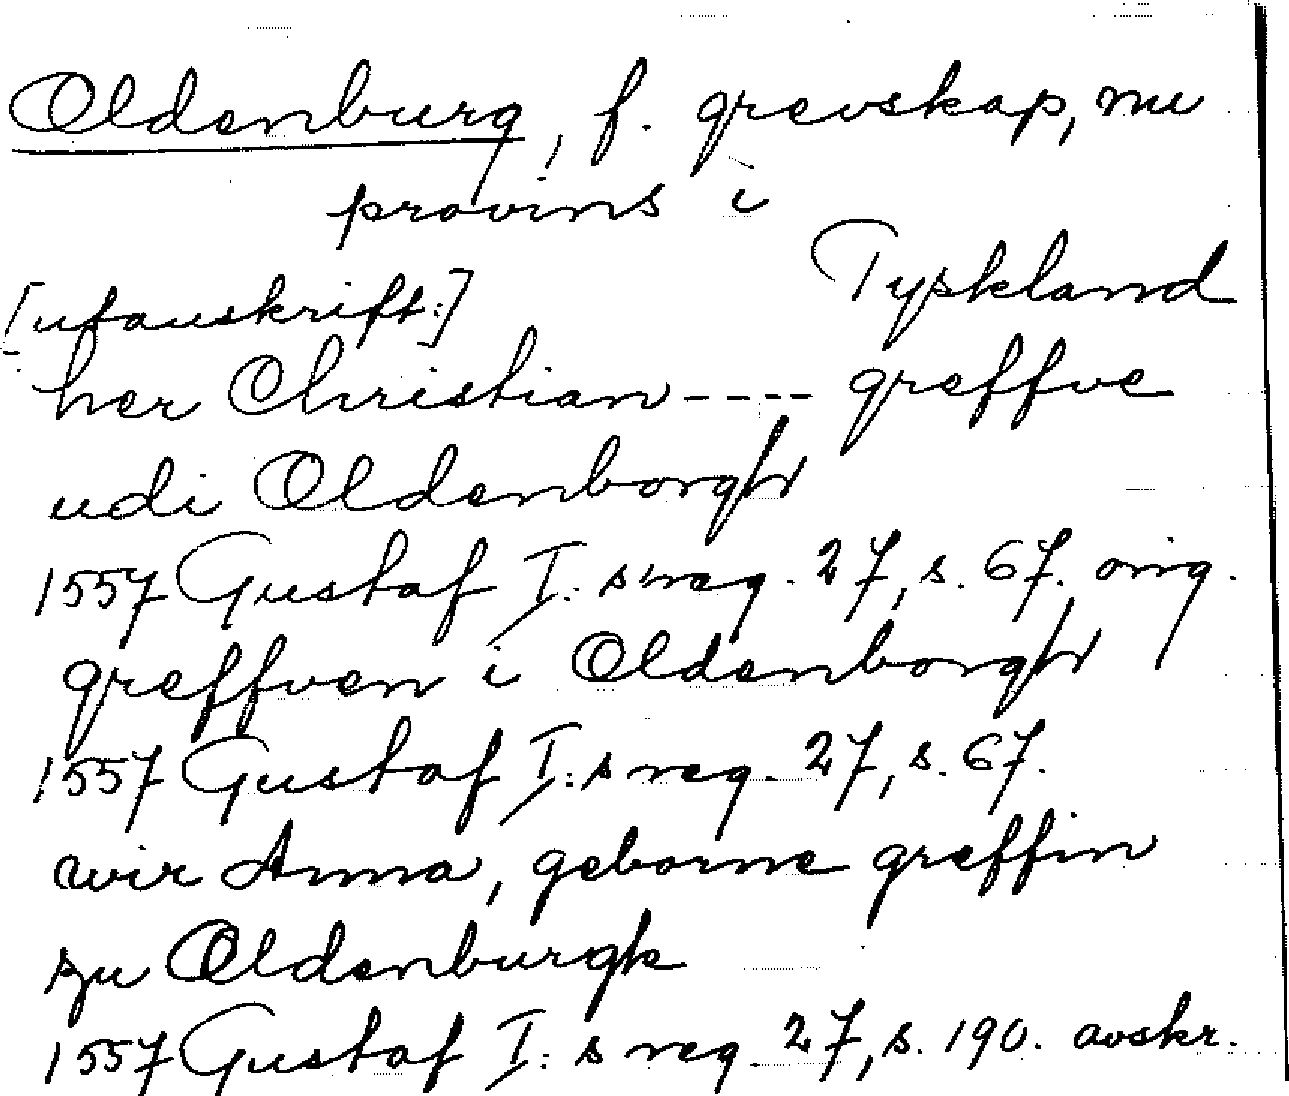 Oldenburg, f. grevskap, nu
provins i
Tyskland
[utanskrift:]
her Christian ---- greffve
udi Oldenborgh
1557 Gustaf I:s reg. 27, s. 67. orig.
greffven i Oldenborgh
1557 Gustaf I:s reg. 27, s. 67.
wir Anna, geborne greffin
zu Oldenburgk
1557 Gustaf I:s reg. 27, s. 190. avskr.